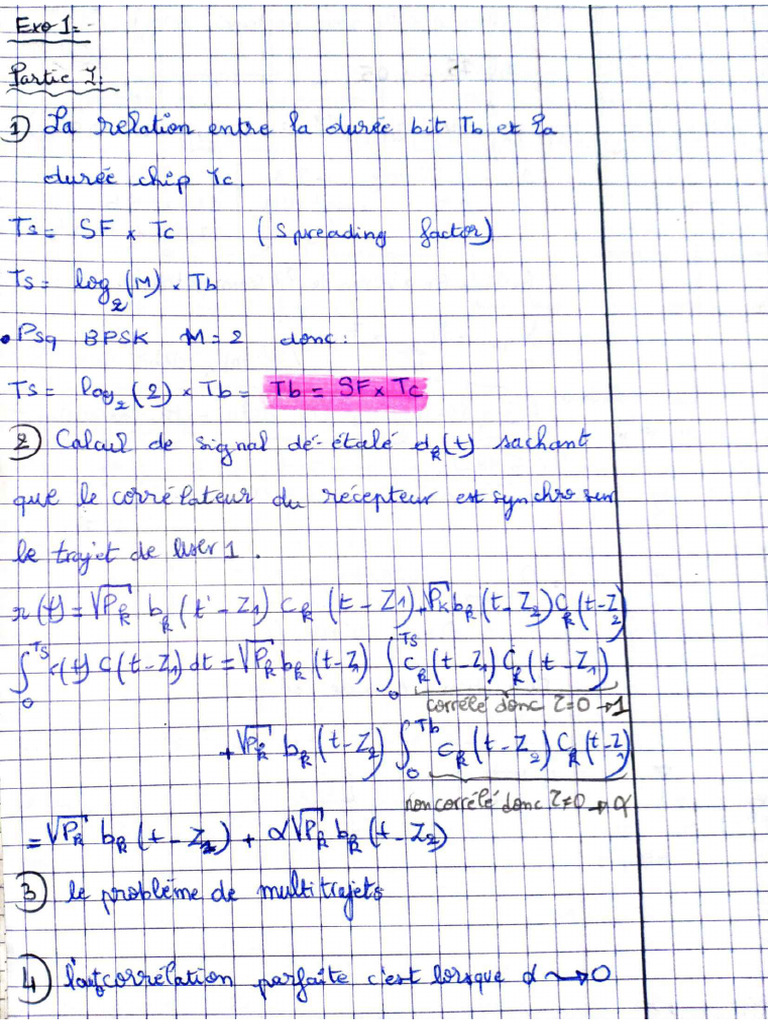 Exo 1:
Partie I:
1) La relation entre la durée bit Tb et la
durée chip Tc.
Ts = SF x Tc (Spreading factor)
Ts = log₂(M) x Tb
• Psq BPSK M = 2 donc :
Ts = log₂(2) x Tb = Tb = SF x Tc
2) Calcul de signal dé-étalé dk(t) sachant
que le corrélateur du récepteur est synchro sur
le trajet de user 1.
r(t) = √Pk bk(t - Z1) ck(t - Z1) + √Pk bk(t - Z2) Ck(t - Z2)
∫₀^Ts r(t) C(t - Z1) dt = √Pk bk(t - Z1) ∫₀^Ts ck(t - Z1) Ck(t - Z1)
corrélé donc τ=0 → 1
+ √Pk bk(t - Z2) ∫₀^Tb ck(t - Z2) Ck(t - Z1)
non corrélé donc τ≠0 → α
= √Pk bk(t - Z1) + α√Pk bk(t - Z2)
3) le problème de multitrajets
4) l'autocorrélation parfaite c'est lorsque α → 0